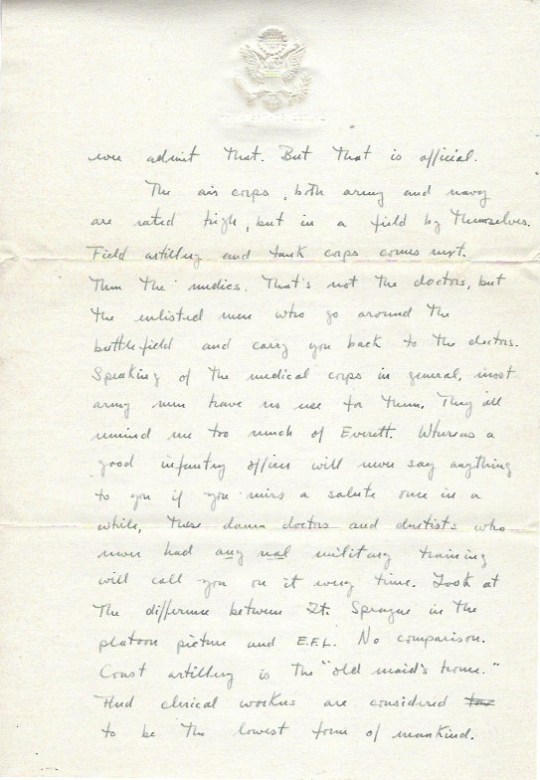 ever admit that. But that is official.
The air corps, both army and navy
are rated high, but in a field by themselves.
Field artillery and tank corps comes next.
Then the medics. That's not the doctors, but
the enlisted men who go around the
battlefield and carry you back to the doctors.
Speaking of the medical corps in general, most
army men have no use for them. They all
remind me too much of Everett. Whereas a
good infantry officer will never say anything
to you if you miss a salute once in a
while, these damn doctors and dentists who
never had any real military training
will call you on it every time. Look at
the difference between Lt. Sprague in the
platoon picture and E.F.L. No comparison.
Coast artillery is the "old maid's home."
And clerical workers are considered
to be the lowest form of mankind.